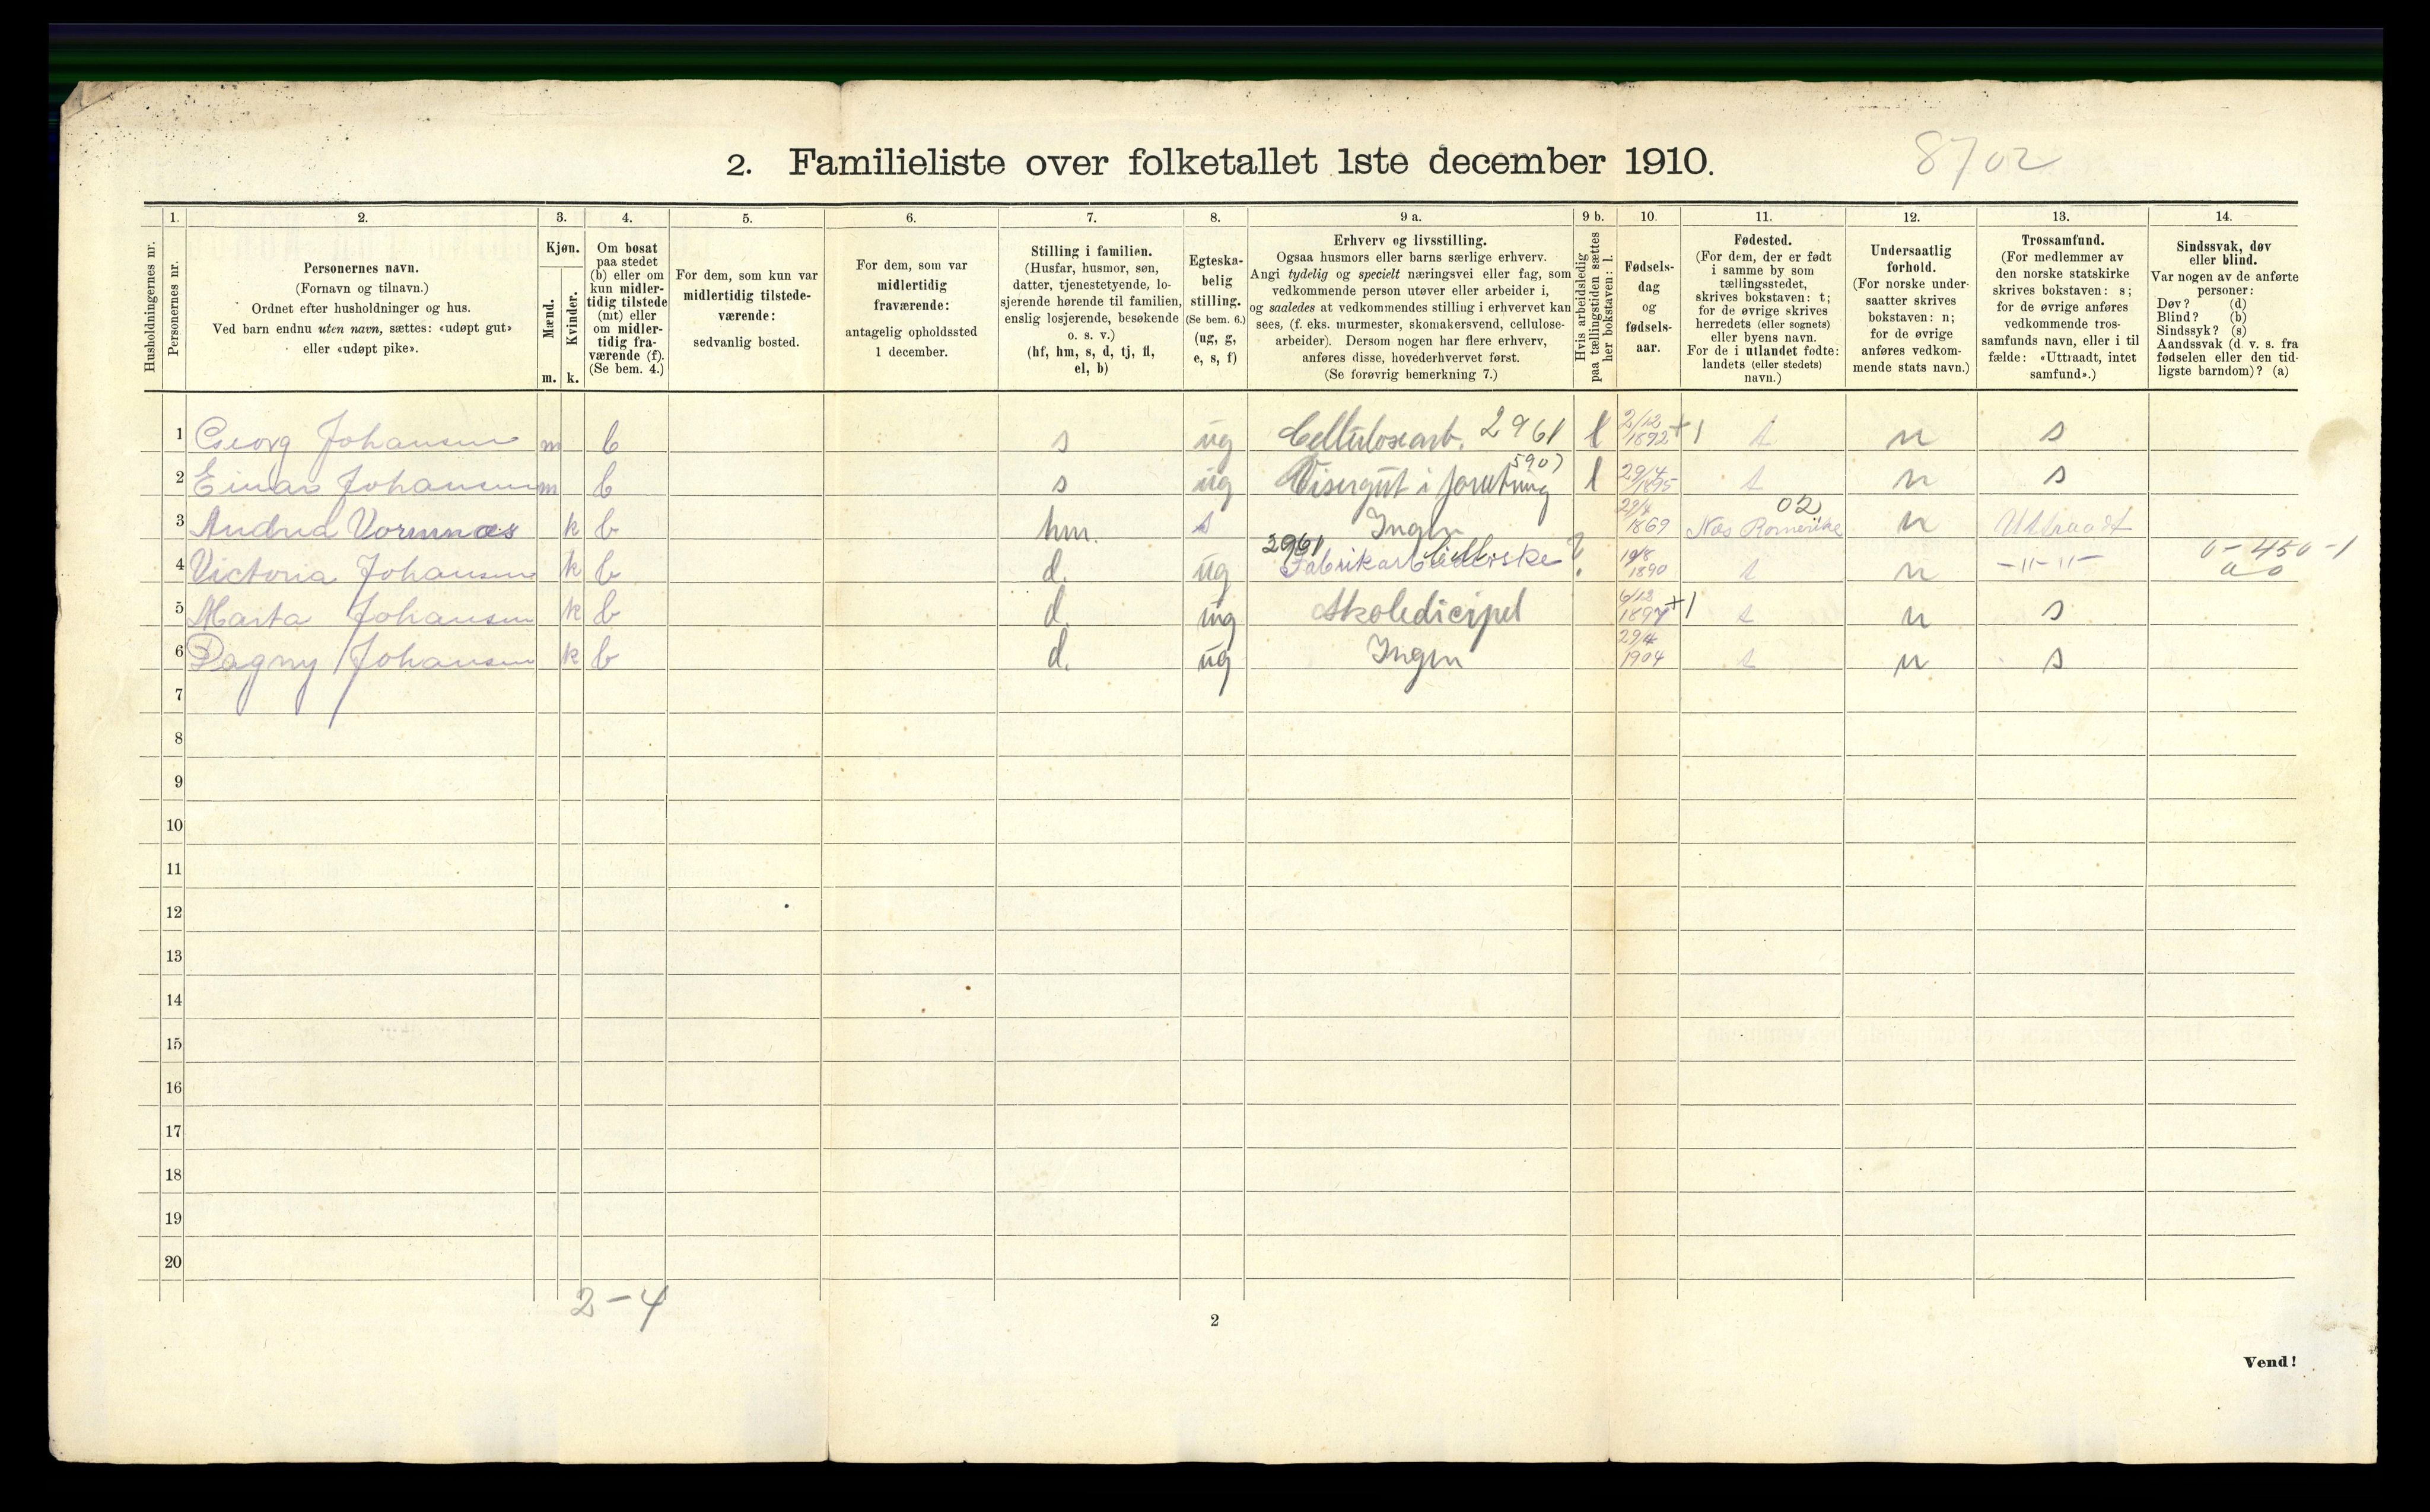 2. Familieliste over folketallet 1ste december 1910.
8702
1. 2. 3. 4. 5. 6. 7. 8. 9 a. 9 b. 10. 11. 12. 13. 14.
Husholdningernes nr.
Personernes nr.
Personernes navn.
(Fornavn og tilnavn.)
Ordnet efter husholdninger og hus.
Ved barn endnu uten navn, sættes: «udøpt gut»
eller «udøpt pike».
Kjøn.
Mænd.
Kvinder.
m. k.
Om bosat
paa stedet
(b) eller om
kun midler-
tidig tilstede
(mt) eller
om midler-
tidig fra-
værende (f).
(Se bem. 4.)
For dem, som kun var
midlertidig tilstede-
værende:
sedvanlig bosted.
For dem, som var
midlertidig
fraværende:
antagelig opholdssted
1 december.
Stilling i familien.
(Husfar, husmor, søn,
datter, tjenestetyende, lo-
sjerende hørende til familien,
enslig losjerende, besøkende
o. s. v.)
(hf, hm, s, d, tj, fl,
el, b)
Egteska-
belig
stilling.
(Se bem. 6.)
(ug, g,
e, s, f)
Erhverv og livsstilling.
Ogsaa husmors eller barns særlige erhverv.
Angi tydelig og specielt næringsvei eller fag, som
vedkommende person utøver eller arbeider i,
og saaledes at vedkommendes stilling i erhvervet kan
sees, (f. eks. murmester, skomakersvend, cellulose-
arbeider). Dersom nogen har flere erhverv,
anføres disse, hovederhvervet først.
(Se forøvrig bemerkning 7.)
Hvis arbeidsledig
paa tællingstiden sættes
her bokstaven: l.
Fødsels-
dag
og
fødsels-
aar.
Fødested.
(For dem, der er født
i samme by som
tællingsstedet,
skrives bokstaven: t;
for de øvrige skrives
herredets (eller sognets)
eller byens navn.
For de i utlandet fødte:
landets (eller stedets)
navn.)
Undersaatlig
forhold.
(For norske under-
saatter skrives
bokstaven: n;
for de øvrige
anføres vedkom-
mende stats navn.)
Trossamfund.
(For medlemmer av
den norske statskirke
skrives bokstaven: s;
for de øvrige anføres
vedkommende tros-
samfunds navn, eller i til-
fælde: «Uttraadt, intet
samfund».)
Sindssvak, døv
eller blind.
Var nogen av de anførte
personer:
Døv? (d)
Blind? (b)
Sindssyk? (s)
Aandssvak (d. v. s. fra
fødselen eller den tid-
ligste barndom)? (a)
1 Georg Johansen m b s ug Cellulosearb. 2961 l 2/12 1892 +1 t n s
2 Einar Johansen m b s ug Visergut i forretning 5907 l 29/4 1895 t n s
3 Andrea Vormnæs k b hm. s Ingen 29/4 1869 Næs Romerike 02 n Uttraadt
4 Victoria Johansen k b d. ug 2961 Fabrikarbeiderske Cell. ? 19/8 1890 t n -11-11- 0-450-1
5 Marta Johansen k b d. ug Skoledicipel 6/12 1897 +1 t n s
6 Dagny Johansen k b d. ug Ingen 29/4 1904 t n s
7
8
9
10
11
12
13
14
15
16
17
18
19
20
2-4
2
Vend!